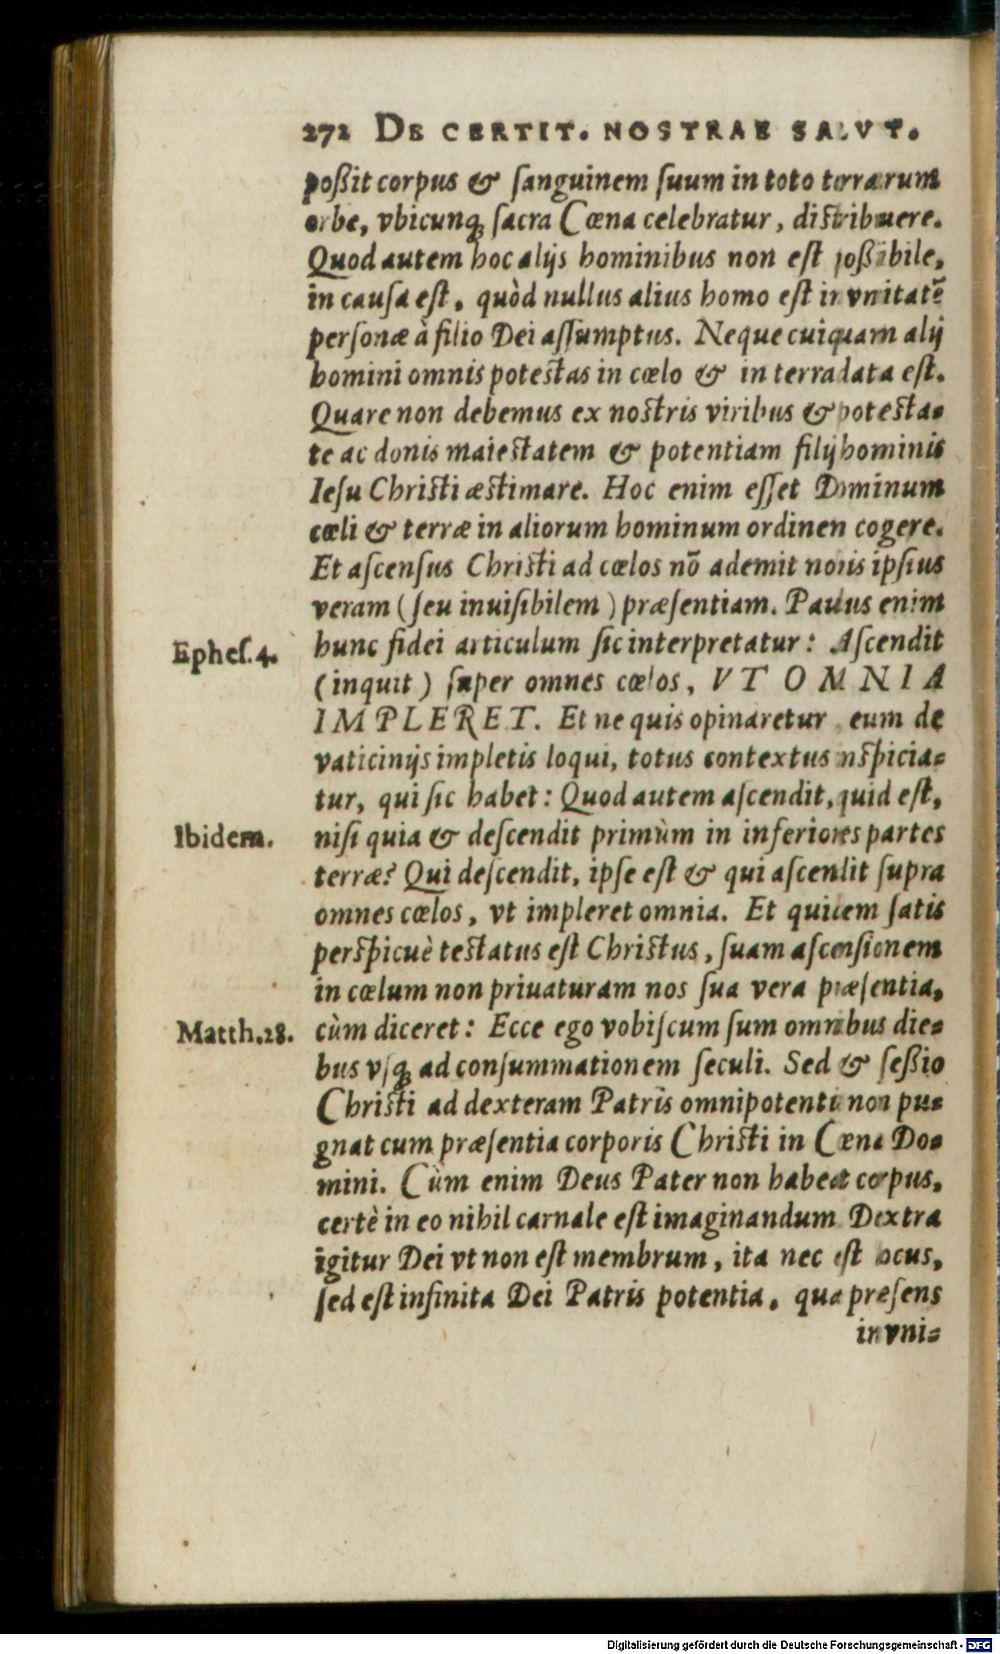 272 DE CERTIT. NOSTRAE SALVT.
poßit corpus & ſanguinem ſuum in toto terrarum
orbe, vbicunq́ ſacra Cœna celebratur, diſtribuere.
Quod autem hoc alijs hominibus non eſt poßibile,
in cauſa eſt, quòd nullus alius homo eſt in vnitatē
perſonæ à filio Dei aſſumptus. Neque cuiquam alij
homini omnis poteſtas in cœlo & in terra data eſt.
Quare non debemus ex noſtris viribus & poteſta-
te ac donis maieſtatem & potentiam filij hominis
Ieſu Chriſti æſtimare. Hoc enim eſſet Dominum
cœli & terræ in aliorum hominum ordinen cogere.
Et aſcenſus Chriſti ad cœlos nō ademit nobis ipſius
veram (ſeu inuiſibilem) præſentiam. Paulus enim
Epheſ. 4. hunc fidei articulum ſic interpretatur: Aſcendit
(inquit) ſuper omnes cœlos, VT OMNIA
IMPLERET. Et ne quis opinaretur eum de
vaticinijs impletis loqui, totus contextus inſpicia-
tur, qui ſic habet: Quod autem aſcendit, quid eſt,
Ibidem. niſi quia & deſcendit primùm in inferiores partes
terræ? Qui deſcendit, ipſe eſt & qui aſcendit ſupra
omnes cœlos, vt impleret omnia. Et quidem ſatis
perſpicuè teſtatus eſt Chriſtus, ſuam aſcenſionem
in cœlum non priuaturam nos ſua vera præſentia,
Matth. 28. cùm diceret: Ecce ego vobiſcum ſum omnibus die-
bus vſq́ ad conſummationem ſeculi. Sed & ſeßio
Chriſti ad dexteram Patris omnipotentis non pu-
gnat cum præſentia corporis Chriſti in Cœna Do-
mini. Cùm enim Deus Pater non habeat corpus,
certè in eo nihil carnale eſt imaginandum. Dextra
igitur Dei vt non eſt membrum, ita nec eſt locus,
ſed eſt infinita Dei Patris potentia, qua præſens
in vni-
Digitalisierung gefördert durch die Deutsche Forschungsgemeinschaft - DFG